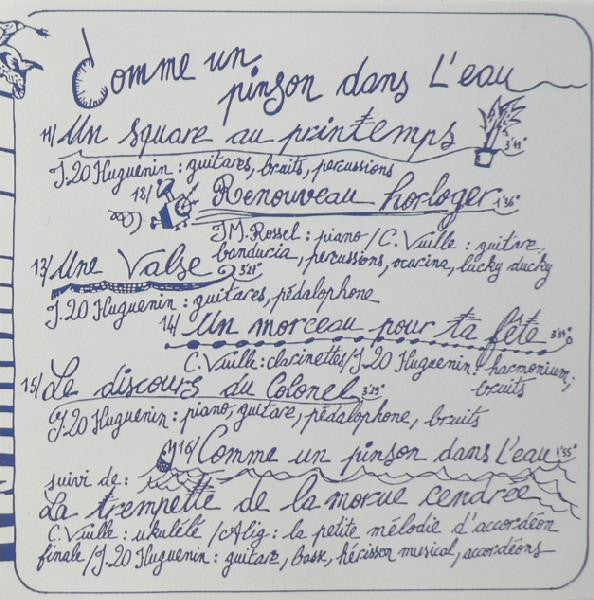 Comme un
pinson dans l'eau
11/ Un square au printemps 3'41"
J.20 Huguenin : guitares, bruits, percussions
12/ Renouveau horloger 1'36"
J.M. Rossel : piano / C. Vuille : guitare,
banduria, percussions, ocarina, lucky ducky
13/ Une Valse
J.20 Huguenin : guitares, pédalophone
14/ Un morceau pour ta fête
C. Vuille : clarinettes / J.20 Huguenin : harmonium,
bruits
15/ Le discours du Colonel
J.20 Huguenin : piano, guitare, pédalophone, bruits
16/ Comme un pinson dans l'eau 1'55"
suivi de :
La trempette de la morue cendrée
C. Vuille : ukulélé / Alig : la petite mélodie d'accordéon
finale / J.20 Huguenin : guitare, bask, hérisson musical, accordéons